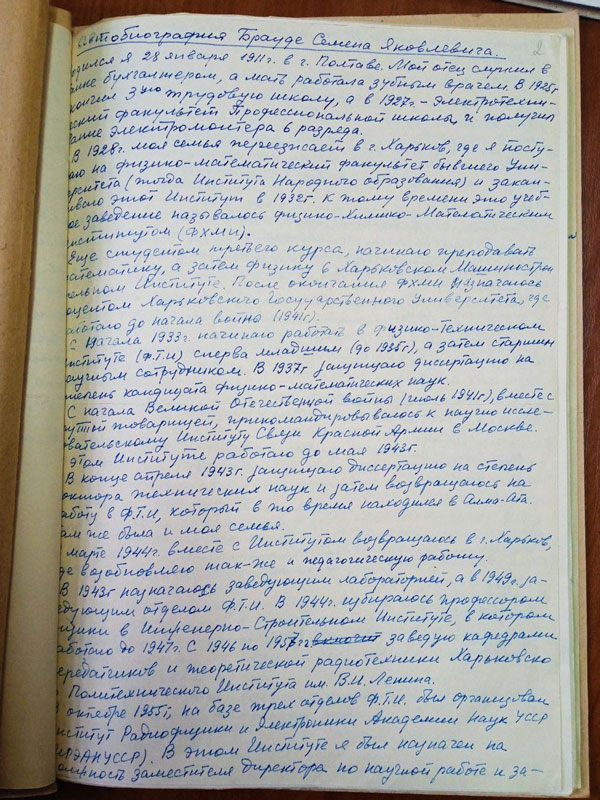 2
Автобиография Брауде Семена Яковлевича.
одился я 28 января 1911г. в г. Полтаве. Мой отец служил в
анке бухгалтером, а мать работала зубным врачем. В 1925г.
кончил 3ью трудовую школу, а в 1927г. – Электротехни-
еский факультет Профессиональной школы и получил
вание электромонтера 6 разряда.
В 1928г. моя семья переезжает в г. Харьков, где я посту-
аю на физико-математический факультет бывшего Уни-
ерситета (тогда Института Народного образования) и закан-
иваю этот Институт в 1932г. К тому времени это учеб-
ое заведение называлось физико-Химико-Математическим
нститутом (ФХМИ).
Еще студентом третьего курса, начинаю преподавать
атематику, а затем физику в Харьковском Машинострои
ельном Институте. После окончания ФХМИ назначаюсь
оцентом Харьковского Государственного Университета, где
аботаю до начала войны (1941г).
С начала 1933г. начинаю работать в Физико-Техническом
нституте (Ф.Т.И) сперва младшим (до 1935г), а затем старшим
аучным сотрудником. В 1937г защищаю диссертацию на
тепень кандидата физико-математических наук.
С начала Великой Отечественной войны (июль 1941г), вместе с
руппой товарищей, прикомандировываюсь к научно иссле-
овательскому Институту Связи Красной Армии в Москве.
этом Институте работаю до мая 1943г.
В конце апреля 1943г. защищаю диссертацию на степень
октора технических наук и затем возвращаюсь на
аботу в Ф.Т.И, который в это время находился в Алма-Ата.
ам же была и моя семья.
марте 1944г. вместе с Институтом возвращаюсь в г. Харьков,
де возобновляю так-же и педагогическую работу.
В 1943г назначаюсь заведующим лабораторией, а в 1949г. за-
едующим отделом Ф.Т.И. В 1944г. избираюсь профессором
изики в Инженерно-Строительном Институте, в котором
аботаю до 1947г. С 1946 по 1957г заведую кафедрами
ередатчиков и теоретической радиотехники Харьковско
Политехнического Института им. В.И. Ленина.
В октябре 1955г, на базе трех отделов Ф.Т.И. был организован
нститут Радиофизики и Электроники Академии Наук УССР
ИРЭАНУССР). В этом Институте я был назначен на
олжность заместителя директора по научной работе и за-